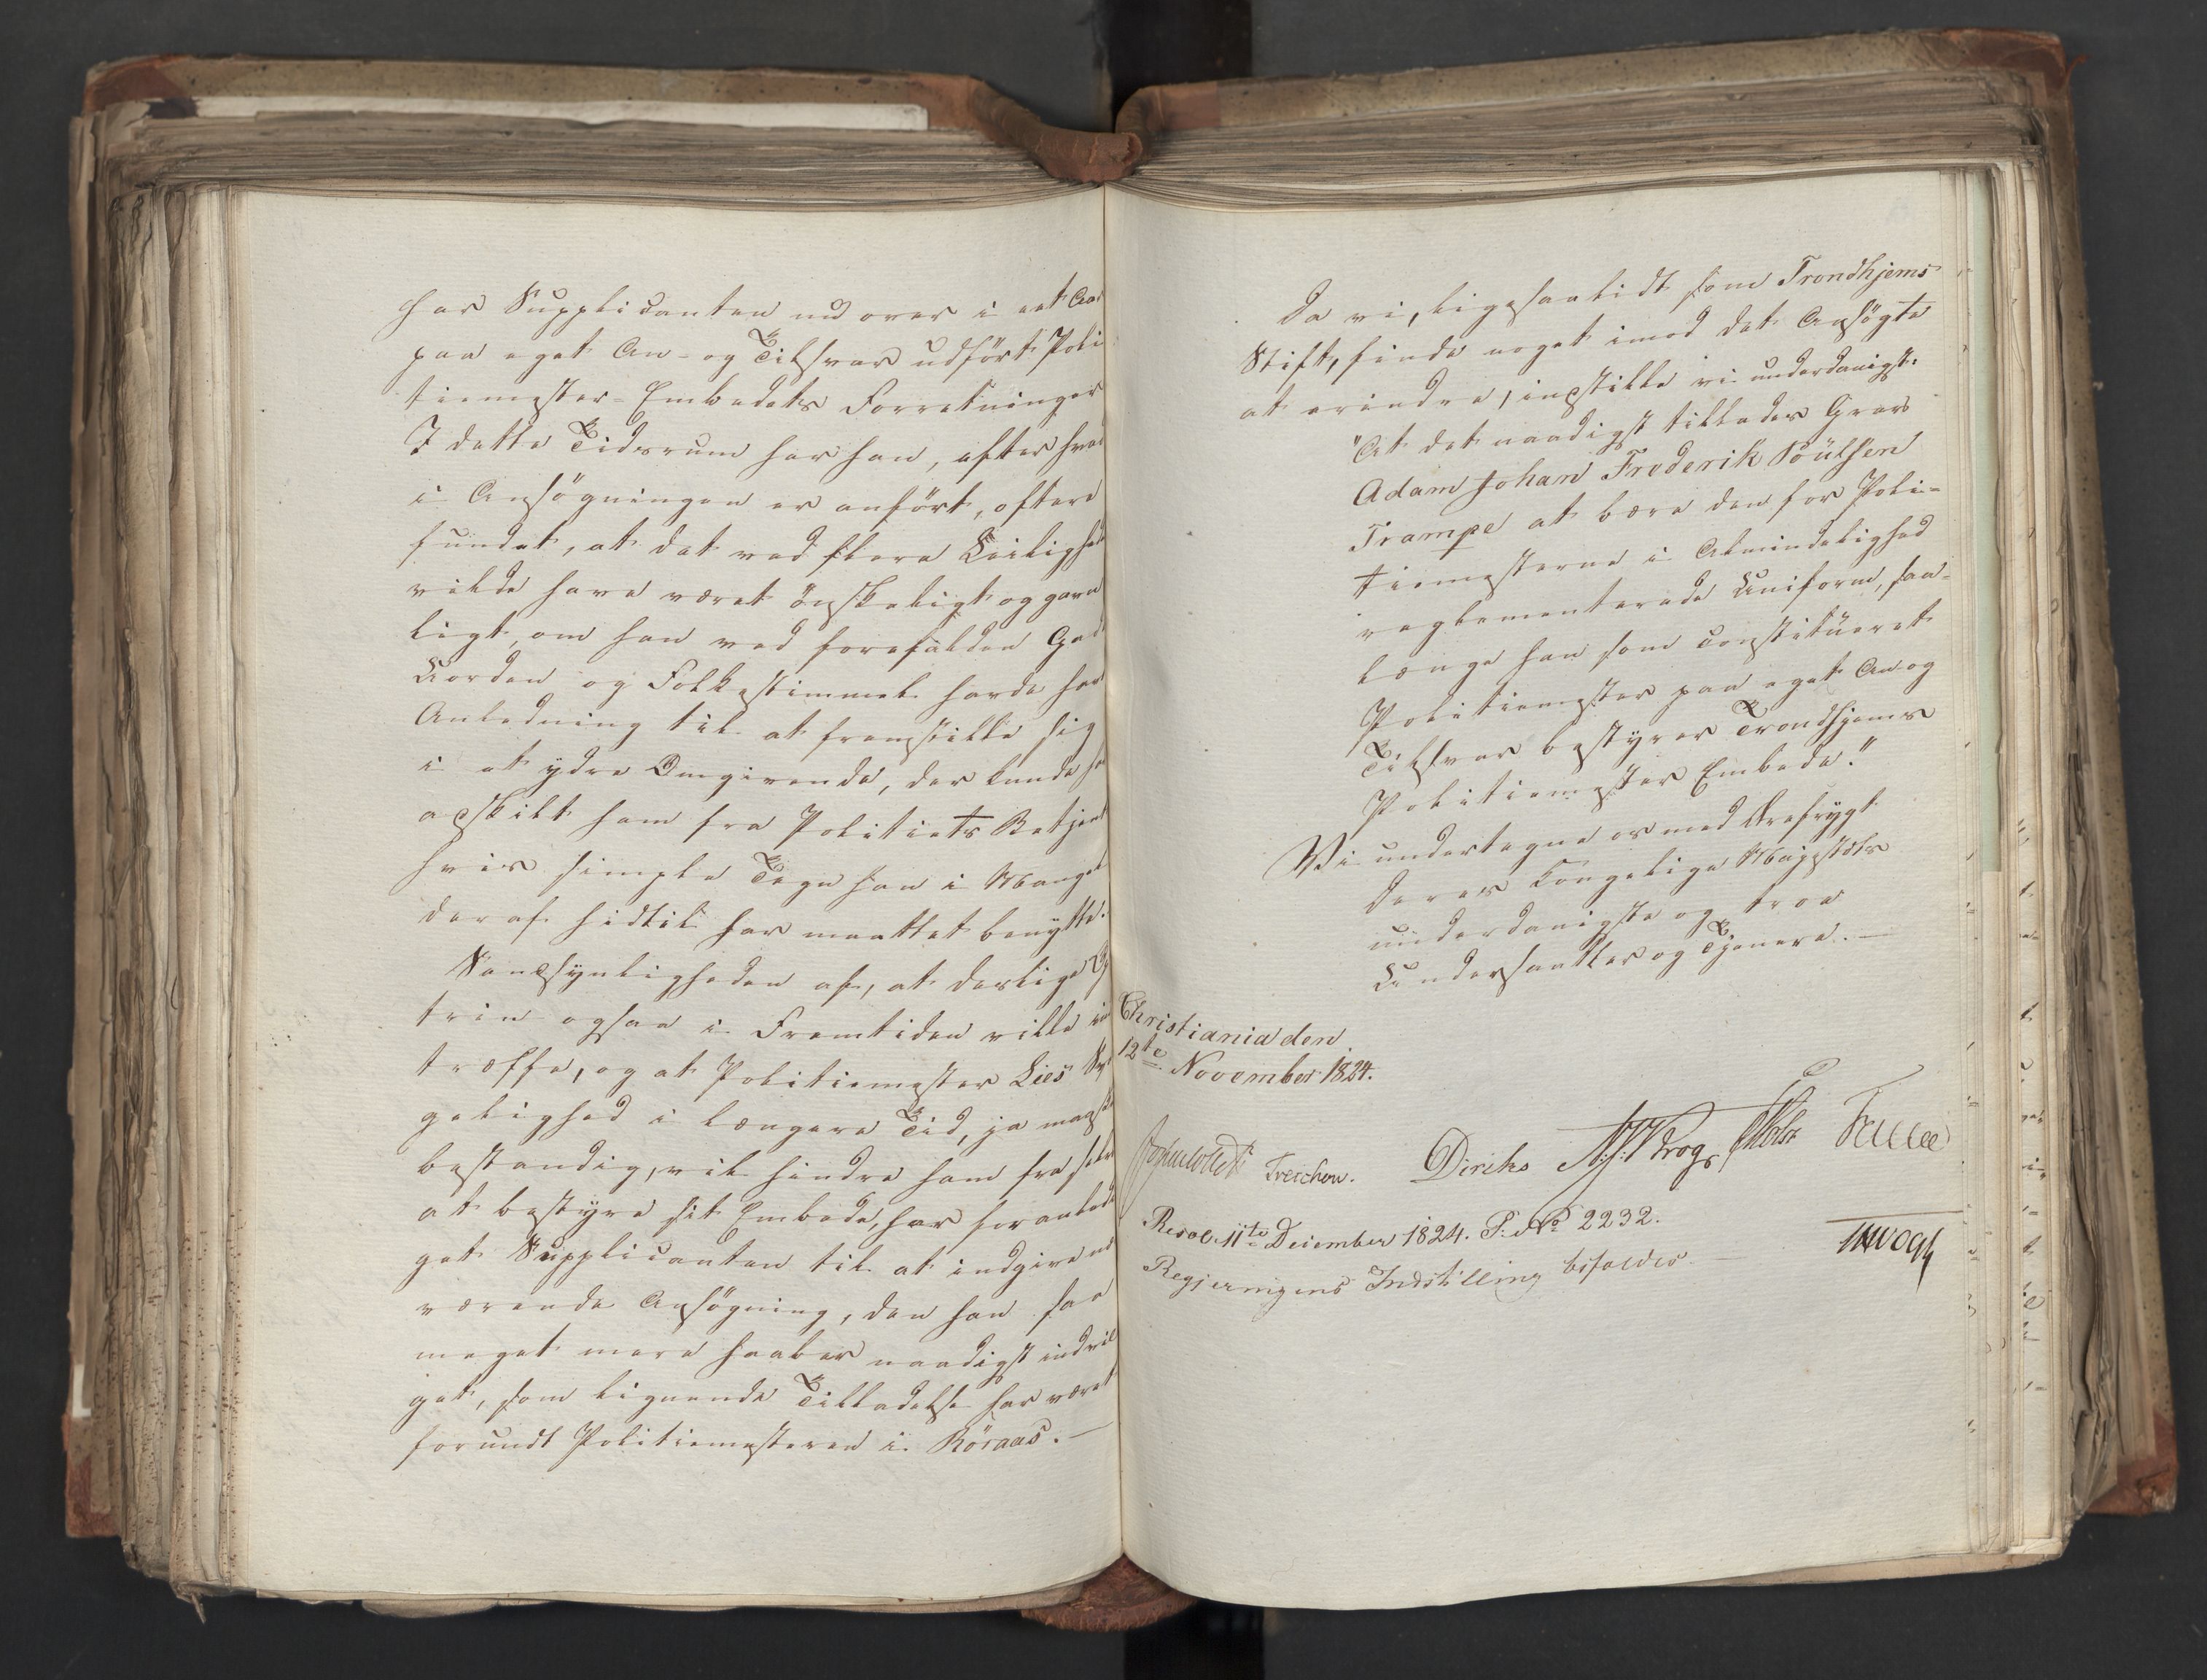 har Supplicanten nu over i eet Aar
paa eget An- og Tilsvar udført Poli
tiemester-Embedets Forretninger
I dette Tidsrum har han, efter hvad
i Ansøgningen er anført, oftere
fundet, at det ved flere Leilighed
vilde have været ønskeligt og gavn
ligt, om han ved forefalden Gade
Uorden og Folkestimmel havde havt
Anledning til at fremstille sig
i et ydre Omgivende, der kunde
adskilt ham fra Politiets Betjent
hvis simple Tegn han i Mangel
deraf hidtil har maattet benytte.
Sandsynligheden af, at deslige
trin ogsaa i Fremtiden ville ind
træffe, og at Politiemester Lies Sy
gelighed i længere Tid, ja maaskee
bestandig, vil hindre ham fra selv
at bestyre sit Embede, har foranledi
get Supplicanten til at indgive nær
værende Ansøgning, den han saa
meget mere haaber naadigst indvil
get, som lignende Tilladelse har været
forundt Politiemesteren i Röraas. —
Da vi, ligesaalidt som Trondhjems
Stift, finde noget imod det Ansøgte
at erindre, indstille vi underdanigst:
"At det naadigst tillades Greve
Adam Johan Frederik Poülsen
Trampe at bære den for Poli-
tiemesterne i Almindelighed
reglementerede Uniform, saa-
længe han som constitüeret
Politiemester paa eget An og
Tilsvar bestyrer Trondhjems
Politiemester Embede."
Vi undertegne os med Ærefrygt
Deres Kongelige Majestæts
ünderdanigste og troe
Undersaatter og Tjenere. —
Christiania den
12te November 1824.
Treschow. Diriks Krog
Resol. 11te December 1824. P: No 2232.
Regjeringens Indstilling bifaldes.